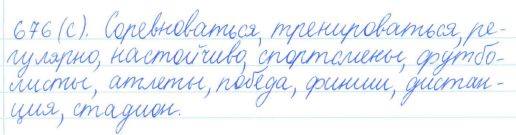 676 (с). Соревноваться, тренироваться, ре-
гулярно, настойчиво, спортсмены, футбо-
листы, атлеты, победа, финиш, дистан-
ция, стадион.